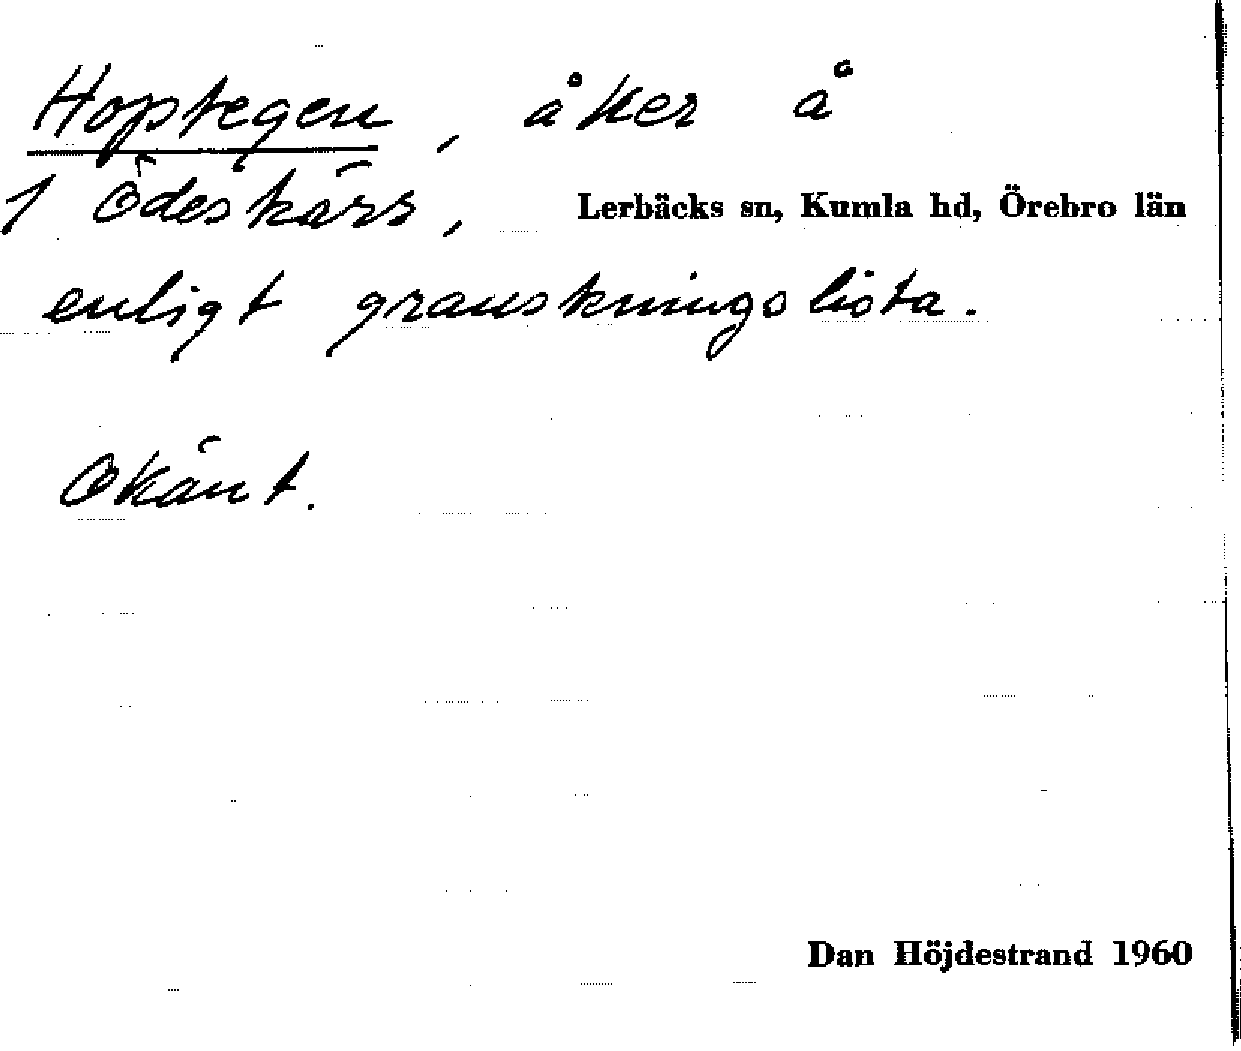 Hoptegen, åker å
1 Ödeskärr, Lerbäcks sn, Kumla hd, Örebro län
enligt granskningslista.
Okänt.
Dan Höjdestrand 1960